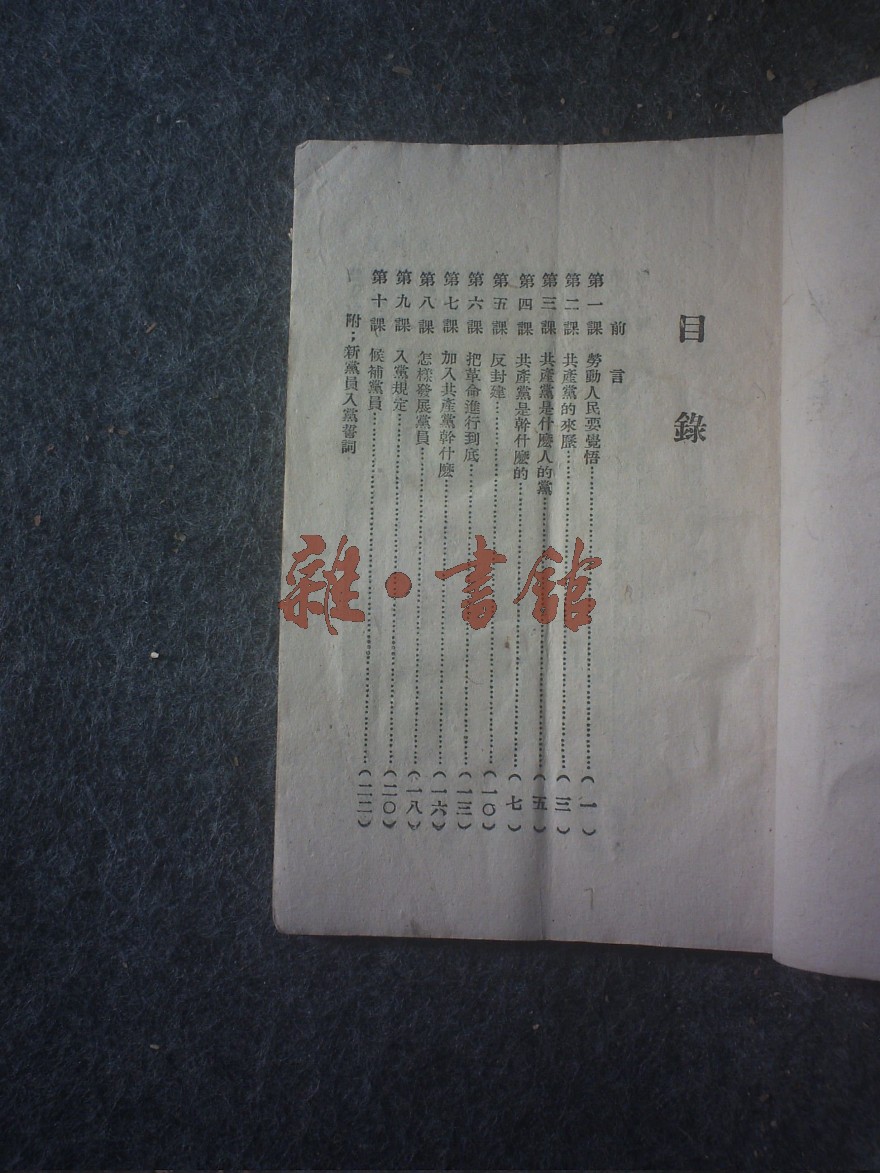 目錄
前言
第一課 勞動人民要覺悟……(一)
第二課 共產黨的來歷……(三)
第三課 共產黨是什麼人的黨……(五)
第四課 共產黨是幹什麼的……(七)
第五課 反封建……(一〇)
第六課 把革命進行到底……(一三)
第七課 加入共產黨幹什麼……(一六)
第八課 怎樣發展黨員……(一八)
第九課 入黨規定……(二〇)
第十課 候補黨員……(二二)
附；新黨員入黨誓詞
雜·書館